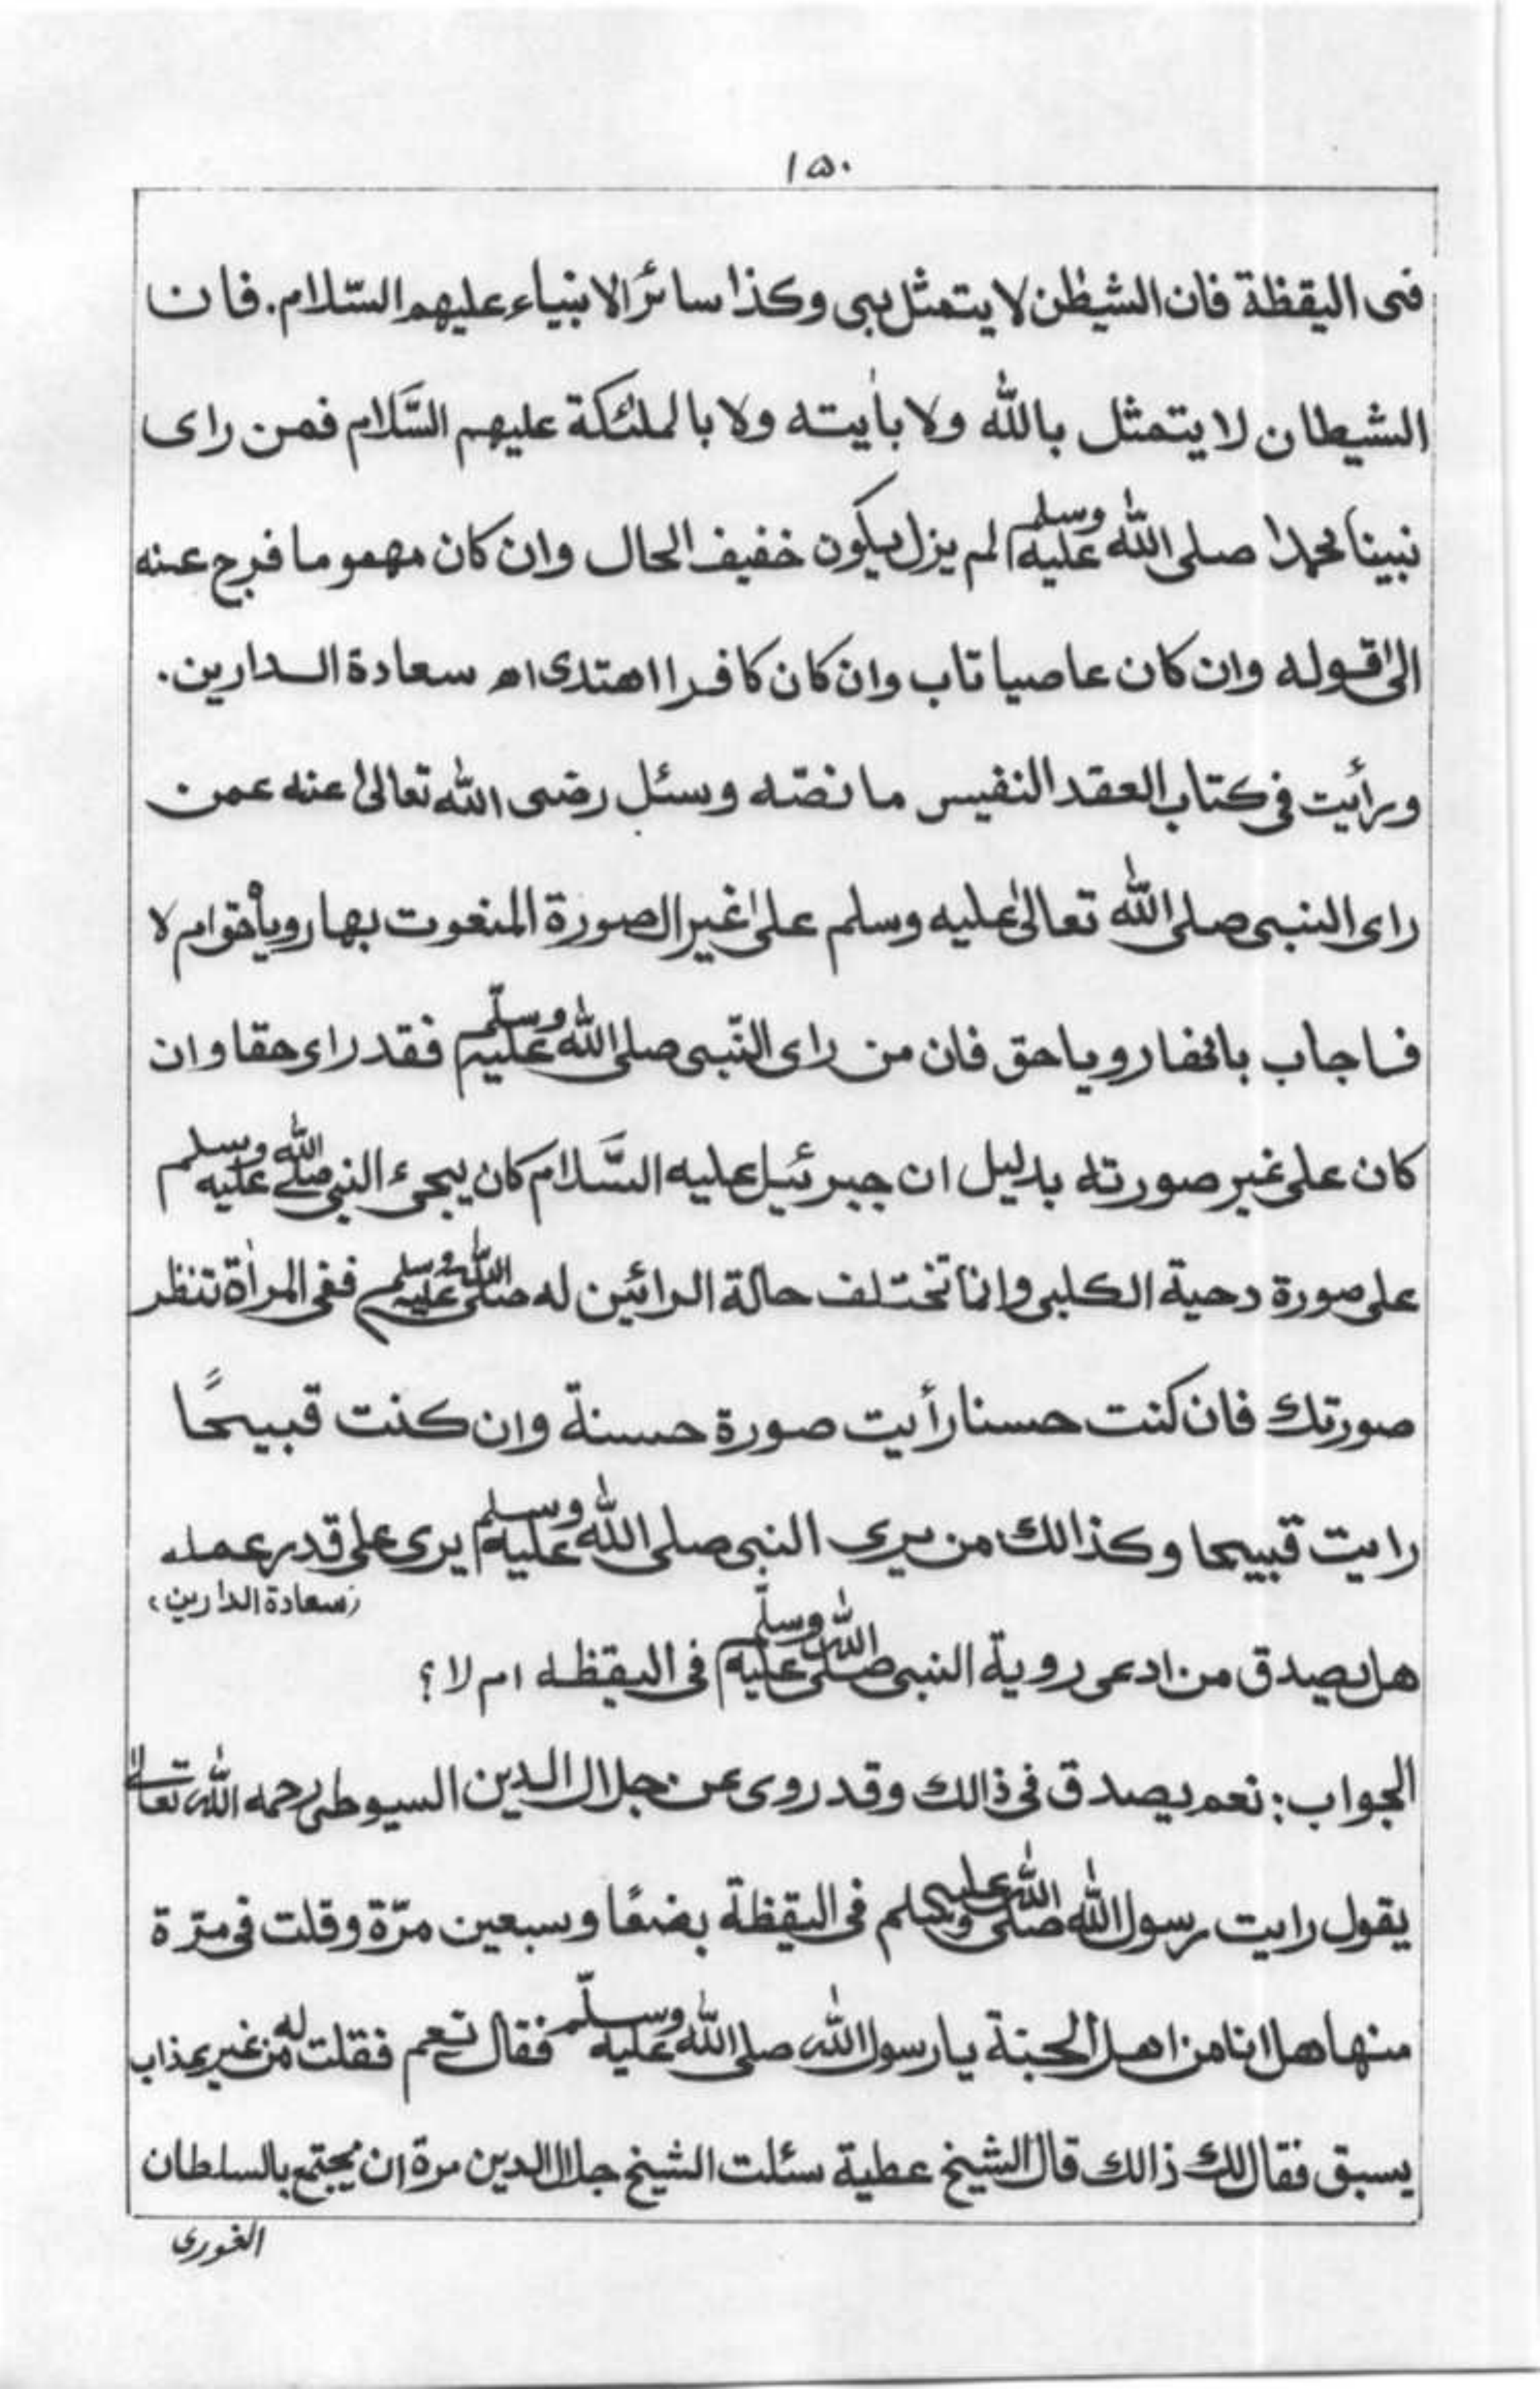 ۱۵۰
فى اليقظة فان الشيطٰن لا يتمثل بى وكذا سائر الانبياء عليهم السّلام. فان
الشيطان لا يتمثل باللّٰه ولا بأٰيته ولا بالملئكة عليهم السَّلام فمن راى
نبينا محمدا صلى اللّٰه عليه وسلم لم يزل يكون خفيف الحال وان كان مهموما فرج عنه
الىٰ قوله وان كان عاصيا تاب وان كان كافرا اهتدى اه سعادة الدارين.
ورأيت فى كتاب العقد النفيس ما نصّه وسئل رضى اللّٰه تعالىٰ عنه عمن
راى النبى صلى اللّٰه تعالىٰ عليه وسلم علىٰ غير الصورة المنعوت بها رويأ حق ام لا
فاجاب بانها رويا حق فان من راى النّبى صلى اللّٰه عليه وسلّم فقد راى حقا وان
كان على غير صورته بدليل ان جبرئيل عليه السَّلام كان يجىء النبى صلى اللّٰه عليه وسلم
على صورة دحية الكلبى وانما تختلف حالة الرائين له صلى اللّٰه عليه وسلم ففى المرأة تنظر
صورتك فان كنت حسنا رأيت صورة حسنة وان كنت قبيحًا
رايت قبيحا وكذالك من يرى النبى صلى اللّٰه عليه وسلم يرى على قدر عمله
(سعادة الدارين)
هل يصدق من ادعى روية النبى صلى اللّٰه عليه وسلّم فى اليقظه ام لا؟
الجواب: نعم يصدق فى ذالك وقد روى عن جلال الدين السيوطى رحمه اللّٰه تعالىٰ
يقول رايت رسول اللّٰه صلى اللّٰه عليه وسلم فى اليقظة بضعًا وسبعين مرّة وقلت فى مرّة
منها هل انا من اهل الجنة يا رسول اللّٰه صلى اللّٰه عليه وسلّم فقال نعم فقلت له من غير عذاب
يسبق فقال لك ذالك قال الشيخ عطية سئلت الشيخ جلال الدين مرة ان يجتمع بالسلطان
الغورى